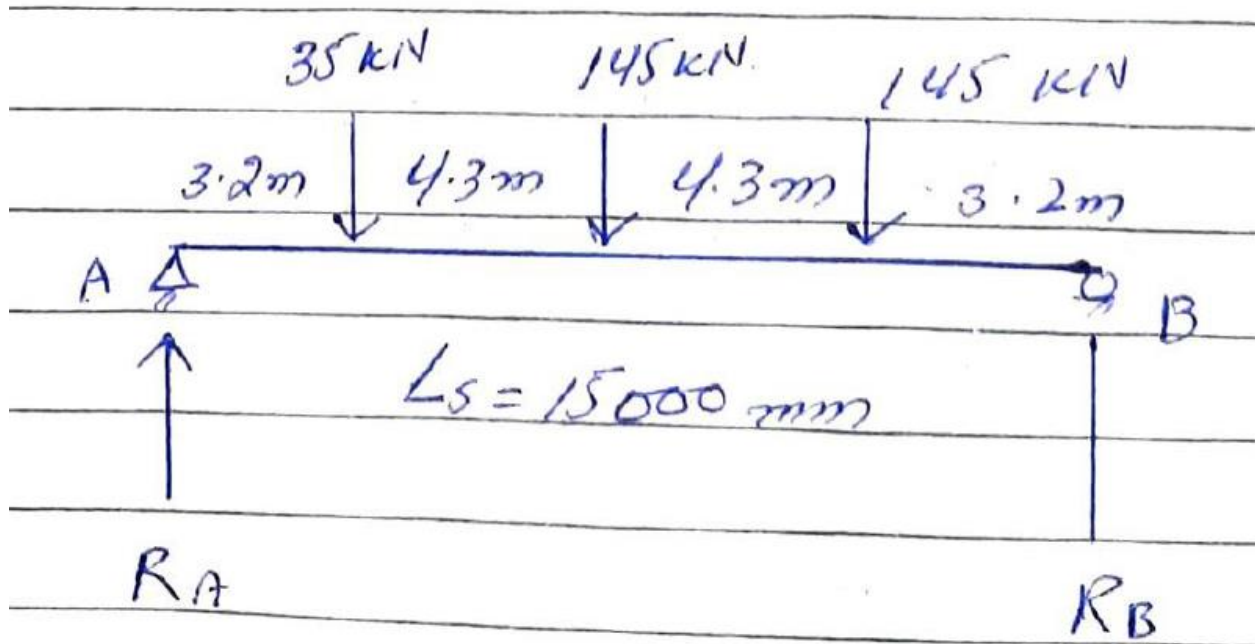 35 KN 145 KN. 145 KN
3.2m 4.3m 4.3m 3.2m
A B
Ls = 15000 mm
RA RB